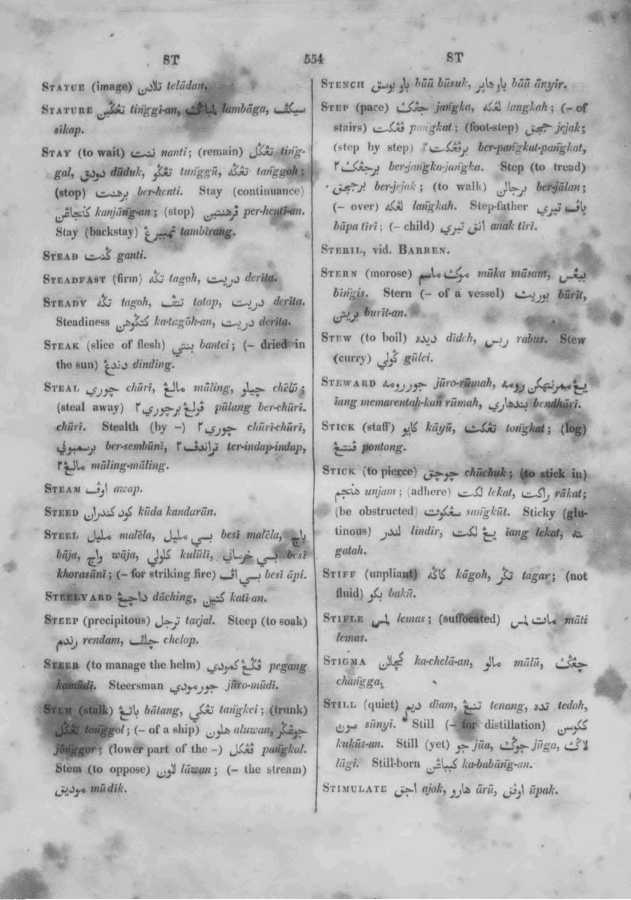 ST 554 ST
STATUE (image) تلادن telādan.
STATURE تڠگين tiṅggi-an, لمباݢ lambāga, سيكف
sīkap.
STAY (to wait) ننت nanti; (remain) تڠگل ting-
gal, دودق dūduk, تڠگو tunggū, تڠگه tanggoh;
(stop) برهنت ber-henti. Stay (continuance)
كنجاڠن kanjāng-an; (stop) ڤرهنتين per-henti-an.
Stay (backstay) تمبيرڠ tambīrang.
STEAD گنت ganti.
STEADFAST (firm) تگه tagoh, دريت derīta.
STEADY تگه tagoh, تتف tatap, دريت derīta.
Steadiness كتگوهن ka-tagōh-an, دريت derīta.
STEAK (slice of flesh) بنتي bantei; (– dried in
the sun) دندڠ dinding.
STEAL چوري chūri, مالڠ māling, چيلو chēlō;
(steal away) ڤولڠ برچوري۲ pūlang ber-chūri.
chūri. Stealth (by –) چوري۲ chūri-chūri,
برسمبوني ber-sembūnī, تراندف۲ ter-indap-indap,
مالڠ۲ māling-māling.
STEAM اوف awap.
STEED كود كندران kūda kandarān.
STEEL مليل malēla, بسي مليل besī malēla, باج
bāja, واج wāja, كلولي kulūlī, بسي خرساني besī
khorasānī; (– for striking fire) بسي اڤ besī āpi.
STEELYARD داچڠ dāching, كتين kati-an.
STEEP (precipitous) ترجل tarjal. Steep (to soak)
رندم rendam, چلڤ chelop.
STEER (to manage the helm) ڤگڠ كمودي pegang
kamūdī. Steersman جورمودي jūro-mūdi.
STEM (stalk) باتڠ bātang, تڠكي tangkei; (trunk)
تڠگل tonggol; (– of a ship) هلون aluwan, جوڠگر
jōnggor; (lower part of the –) ڤڠكل pangkal.
Stem (to oppose) لاون lāwan; (– the stream)
موديق mūdik.
STENCH باو بوسق bāū būsuk, باو هاير bāū ānyir.
STEP (pace) جڠك jangka, لڠكه langkah; (– of
stairs) ڤڠكت pangkat; (foot-step) ججق jejak;
(step by step) برڤڠكت۲ ber-pangkat-pangkat,
برجڠك۲ ber-jangka-jangka. Step (to tread)
برججق ber-jejak; (to walk) برجالن ber-jālan;
(– over) لڠكه langkah. Step-father باڤ تيري
bāpa tīrī; (– child) انق تيري anak tīrī.
STERIL, vid. BARREN.
STERN (morose) موك ماسم mūka māsam, بيڠس
bīngis. Stern (– of a vessel) بوريت būrīt,
بريتن burīt-an.
STEW (to boil) ديده dīdeh, ربس rabus. Stew
(curry) گولي gūlei.
STEWARD جورورومه jūro-rūmah, يڠ ممرنتهكن رومه
iang memarentah-kan rūmah, بندهاري bendhārī.
STICK (staff) كايو kāyū, تڠكت tongkat; (log)
ڤنتڠ pontong.
STICK (to pierce) چوچق chūchuk; (to stick in)
هنجم unjam; (adhere) لكت lekat, راكت rākat;
(be obstructed) سڠكوت sangkūt. Sticky (glu-
tinous) لندر lindir, يڠ لكت iang lekat, گته
gatah.
STIFF (unpliant) كاگه kāgoh, تگر tagar; (not
fluid) بكو bakū.
STIFLE لمس lemas; (suffocated) مات لمس māti
lemas.
STIGMA كچلان ka-chelā-an, مالو mālū, چڠگ
changga.
STILL (quiet) ديم dīam, تنڠ tenang, تده tedoh,
سوني sūnyī. Still (– for distillation) ككوسن
kukūs-an. Still (yet) جو jūa, جوݢ jūga, لاݢ
lāgi. Still-born كبباڠن ka-babāng-an.
STIMULATE اجق ajok, هارو ārū, اوڤق ūpak.